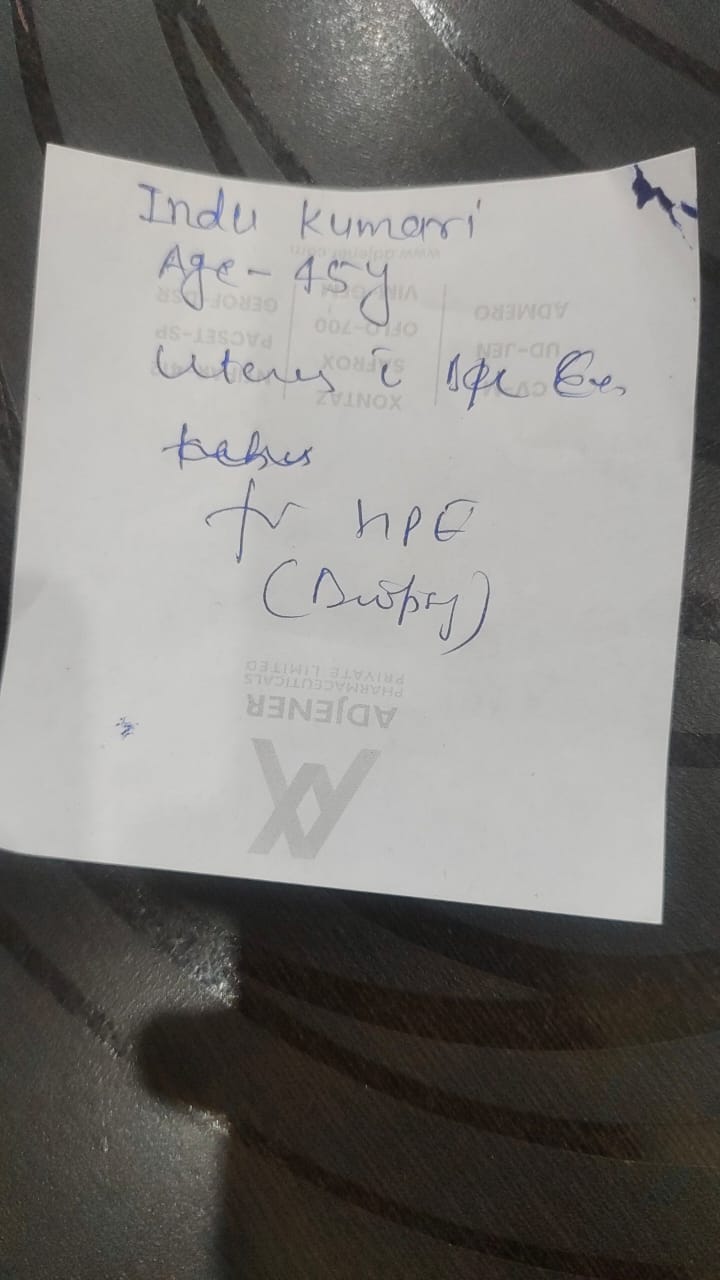 Indu Kumari
Age - 45y
Uterus c̄ B/L
tubes
for HPE
(Biopsy)
www.adjener.com
ADMERO
UD-JEN
GEROF-DSR
PACSET-SP
OFLO-700
SAFROX
XONTAZ
ADJENER
PHARMACEUTICALS
PRIVATE LIMITED